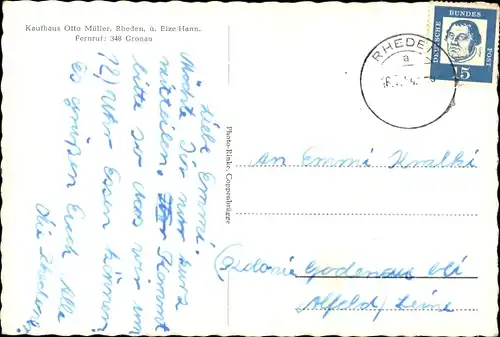 Kaufhaus Otto Müller, Rheden, ü. Elze-Hann.
Fernruf: 348 Gronau
Liebe Emmi.
Möchte Dir nur kurz
mitteilen. Kommt
bitte so das wir um
12) Uhr Essen können
Es grüßen Euch Alle
Photo-Rinke, Coppenbrügge
RHEDEN
a
DEUTSCHE
BUNDES
POST
15
An Emmi Kvalki
Alfeld / Leine